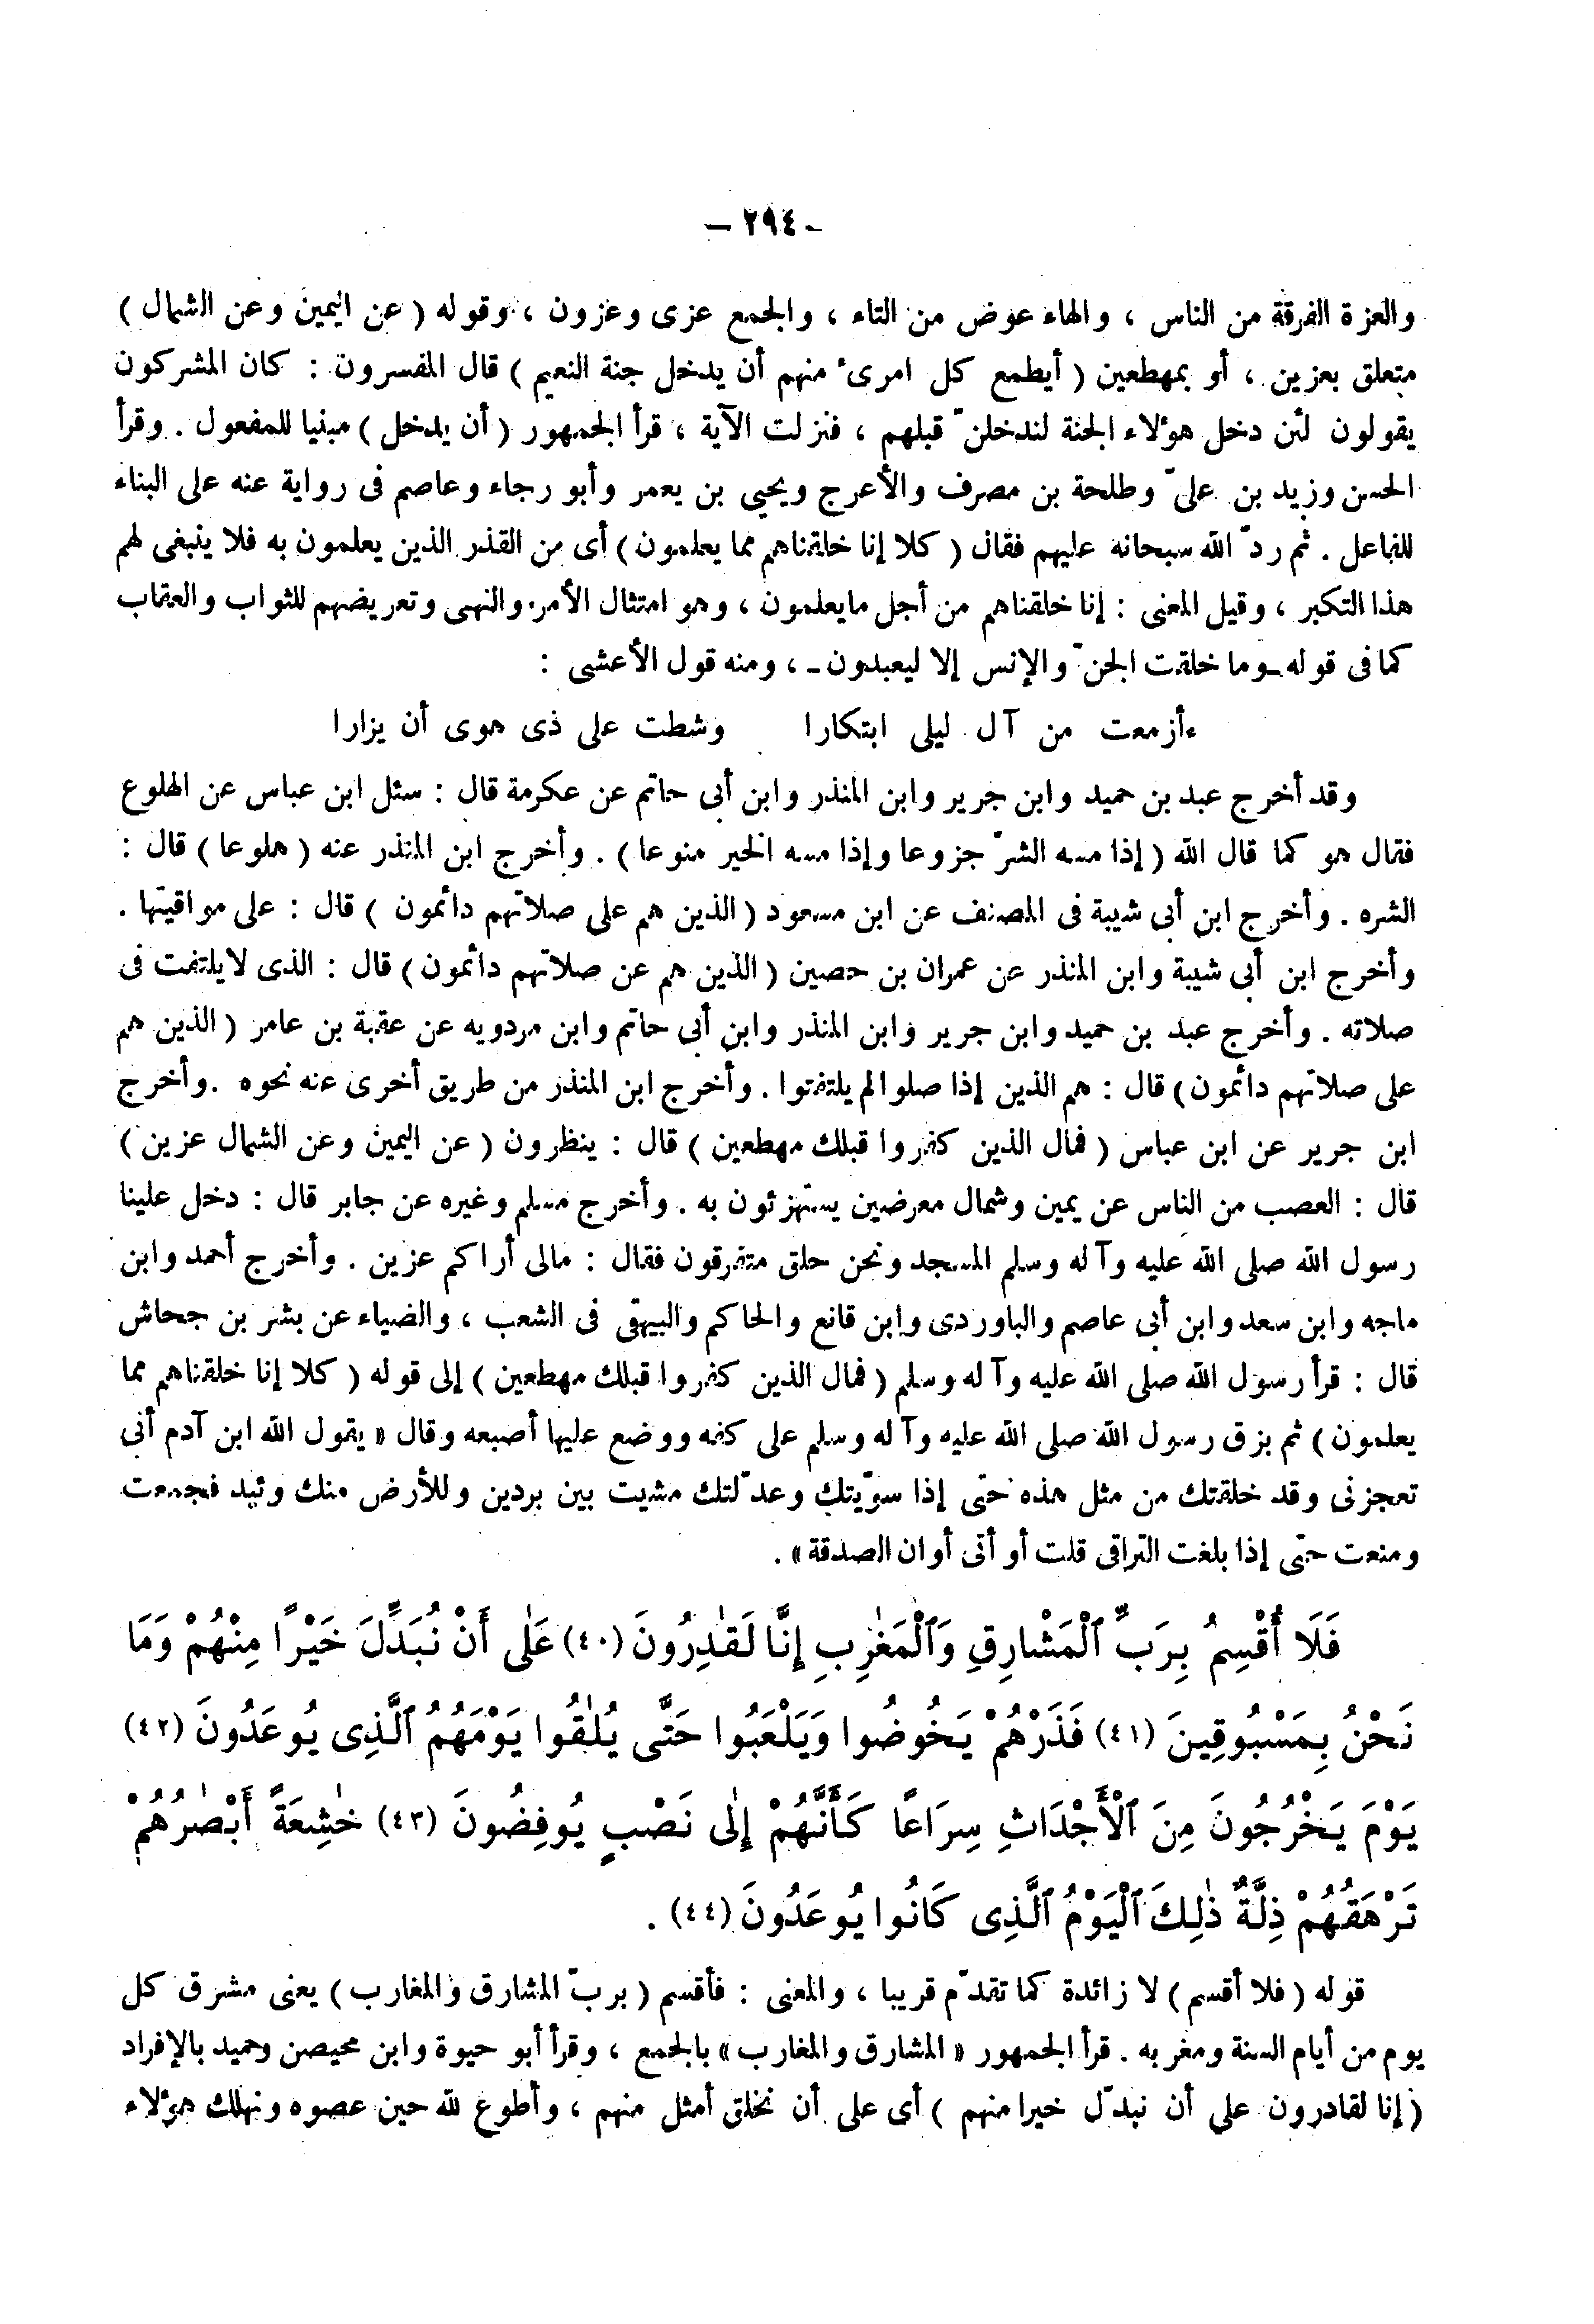 - ٢٩٤ -
والعزة الفرقة من الناس ، والهاء عوض من التاء ، والجمع عزى وعزون ، وقوله ( عن اليمين وعن الشمال )
متعلق بعزين ، أو بمهطعين ( أيطمع كل امرئ منهم أن يدخل جنة النعيم ) قال المفسرون : كان المشركون
يقولون لئن دخل هؤلاء الجنة لندخلنّ قبلهم ، فنزلت الآية ، قرأ الجمهور ( أن يدخل ) مبنيا للمفعول . وقرأ
الحسن وزيد بن علىّ وطلحة بن مصرف والأعرج ويحيى بن يعمر وأبو رجاء وعاصم فى رواية عنه على البناء
للفاعل . ثم ردّ الله سبحانه عليهم فقال ( كلا إنا خلقناهم مما يعلمون ) أى من القذر الذين يعلمون به فلا ينبغى لهم
هذا التكبر ، وقيل المعنى : إنا خلقناهم من أجل مايعلمون ، وهو امتثال الأمر والنهى وتعريضهم للثواب والعقاب
كما فى قوله ـ وما خلقت الجنّ والإنس إلا ليعبدون ـ ، ومنه قول الأعشى :
ءأزمعت من آل ليلى ابتكارا وشطت على ذى هوى أن يزارا
وقد أخرج عبد بن حميد وابن جرير وابن المنذر وابن أبى حاتم عن عكرمة قال : سئل ابن عباس عن الهلوع
فقال هو كما قال الله ( إذا مسه الشرّ جزوعا وإذا مسه الخير منوعا ) . وأخرج ابن المنذر عنه ( هلوعا ) قال :
الشره . وأخرج ابن أبى شيبة فى المصنف عن ابن مسعود ( الذين هم على صلاتهم دائمون ) قال : على مواقيتها .
وأخرج ابن أبى شيبة وابن المنذر عن عمران بن حصين ( الذين هم عن صلاتهم دائمون ) قال : الذى لايلتفت فى
صلاته . وأخرج عبد بن حميد وابن جرير وابن المنذر وابن أبى حاتم وابن مردويه عن عقبة بن عامر ( الذين هم
على صلاتهم دائمون ) قال : هم الذين إذا صلوا لم يلتفتوا . وأخرج ابن المنذر من طريق أخرى عنه نحوه . وأخرج
ابن جرير عن ابن عباس ( فمال الذين كفروا قبلك مهطعين ) قال : ينظرون ( عن اليمين وعن الشمال عزين )
قال : العصب من الناس عن يمين وشمال معرضين يستهزئون به . وأخرج مسلم وغيره عن جابر قال : دخل علينا
رسول الله صلى الله عليه وآله وسلم المسجد ونحن حلق متفرقون فقال : مالى أراكم عزين . وأخرج أحمد وابن
ماجه وابن سعد وابن أبى عاصم والباوردى وابن قانع والحاكم والبيهقى فى الشعب ، والضياء عن بشر بن جحاش
قال : قرأ رسول الله صلى الله عليه وآله وسلم ( فمال الذين كفروا قبلك مهطعين ) إلى قوله ( كلا إنا خلقناهم مما
يعلمون ) ثم بزق رسول الله صلى الله عليه وآله وسلم على كفه ووضع عليها أصبعه وقال « يقول الله ابن آدم أنى
تعجزنى وقد خلقتك من مثل هذه حتى إذا سوّيتك وعدّلتك مشيت بين بردين وللأرض منك وئيد فجمعت
ومنعت حتى إذا بلغت التراقى قلت أو أتى أوان الصدقة » .
فَلَا أُقْسِمُ بِرَبِّ ٱلْمَشَارِقِ وَٱلْمَغَٰرِبِ إِنَّا لَقَٰدِرُونَ (٤٠) عَلَى أَنْ نُبَدِّلَ خَيْرًا مِنْهُمْ وَمَا
نَحْنُ بِمَسْبُوقِينَ (٤١) فَذَرْهُمْ يَخُوضُوا وَيَلْعَبُوا حَتَّى يُلَٰقُوا يَوْمَهُمُ ٱلَّذِى يُوعَدُونَ (٤٢)
يَوْمَ يَخْرُجُونَ مِنَ ٱلْأَجْدَاثِ سِرَاعًا كَأَنَّهُمْ إِلَى نَصْبٍ يُوفِضُونَ (٤٣) خَٰشِعَةً أَبْصَٰرُهُمْ
تَرْهَقُهُمْ ذِلَّةٌ ذَٰلِكَ ٱلْيَوْمُ ٱلَّذِى كَانُوا يُوعَدُونَ (٤٤) .
قوله ( فلا أقسم ) لا زائدة كما تقدّم قريبا ، والمعنى : فأقسم ( بربّ المشارق والمغارب ) يعنى مشرق كل
يوم من أيام السنة ومغربه . قرأ الجمهور « المشارق والمغارب » بالجمع ، وقرأ أبو حيوة وابن محيصن وحميد بالإفراد
( إنا لقادرون على أن نبدّل خيرا منهم ) أى على أن نخلق أمثل منهم ، وأطوع لله حين عصوه ونهلك هؤلاء